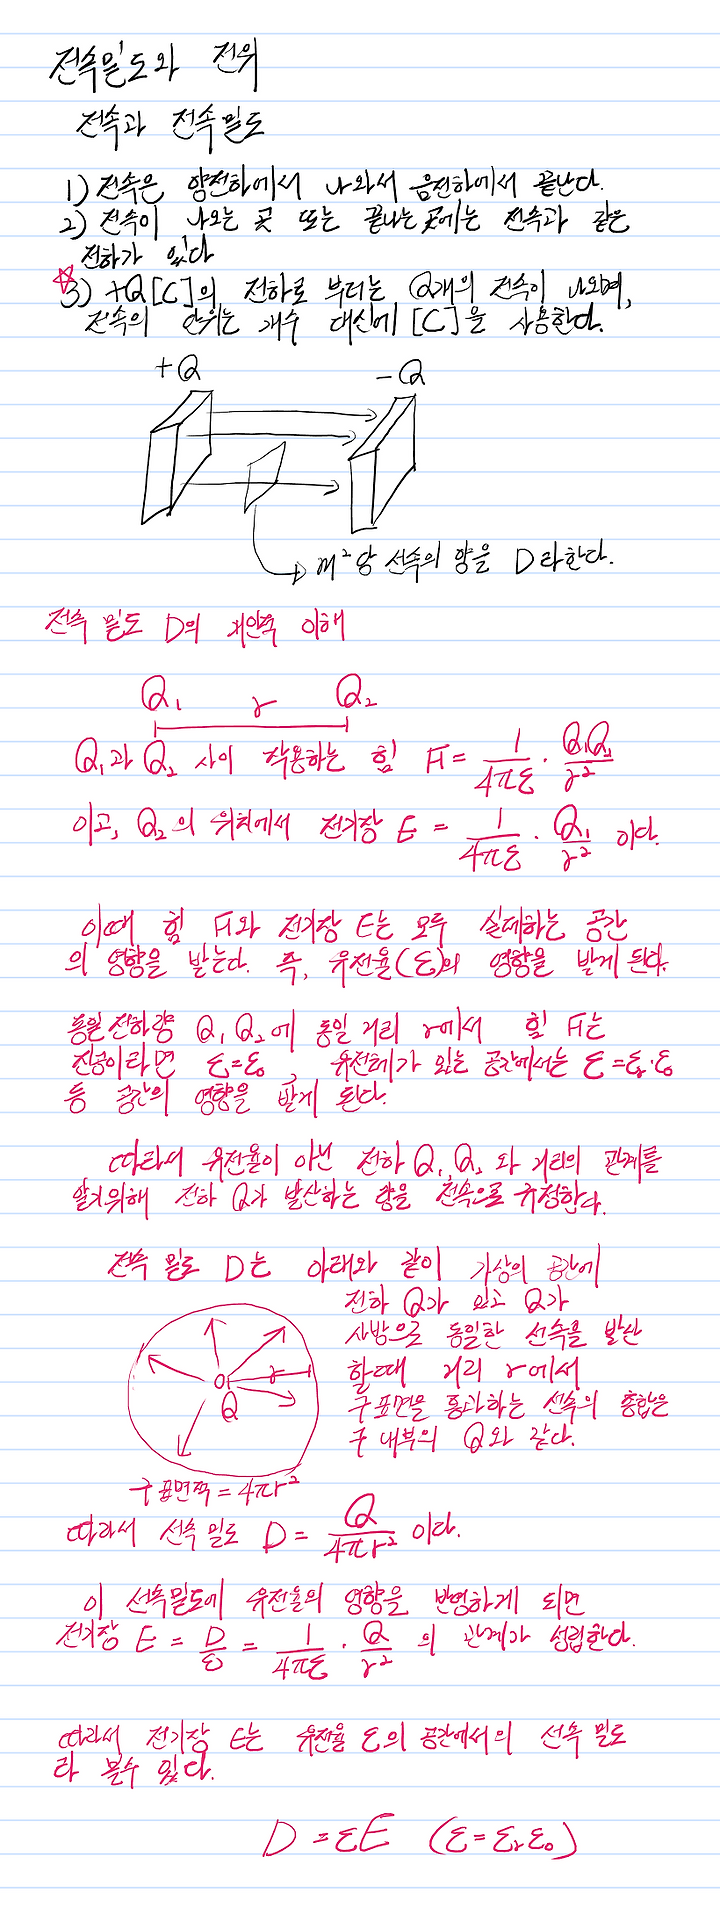 전속밀도와 전위
전속과 전속밀도
1) 전속은 양전하에서 나와서 음전하에서 끝난다.
2) 전속이 나오는 곳 또는 끝나는 곳에는 전속과 같은
전하가 있다
☆
3) +Q[C]의 전하로 부터는 Q개의 전속이 나오며,
전속의 단위는 개수 대신에 [C]을 사용한다.
+Q -Q
m² 당 선속의 양을 D라한다.
전속 밀도 D의 개인적 이해
Q₁ r Q₂
Q₁과 Q₂ 사이 작용하는 힘 F = 1/4πε · Q₁Q₂/r²
이고, Q₂의 위치에서 전기장 E = 1/4πε · Q₁/r² 이다.
이때 힘 F와 전기장 E는 모두 실제하는 공간
의 영향을 받는다. 즉, 유전율(ε)의 영향을 받게 된다.
동일 전하량 Q₁ Q₂에 동일 거리 r에서 힘 F는
진공이라면 ε=ε₀ , 유전체가 있는 공간에서는 ε=εᵣ·ε₀
등 공간의 영향을 받게 된다.
따라서 유전율이 아닌 전하 Q₁, Q₂ 와 거리의 관계를
알기위해 전하 Q가 발산하는 양을 전속으로 규정한다.
전속 밀도 D는 아래와 같이 가상의 공간에
전하 Q가 있고 Q가
사방으로 동일한 선속를 발산
할때 거리 r에서
구 표면을 통과하는 선속의 총합은
구 내부의 Q와 같다.
r
Q
구 표면적 = 4πr²
따라서 선속 밀도 D = Q/4πr² 이다.
이 선속밀도에 유전율의 영향을 반영하게 되면
전기장 E = D/ε = 1/4πε · Q/r² 의 관계가 성립한다.
따라서 전기장 E는 유전율 ε의 공간에서의 선속 밀도
라 볼수 있다.
D = εE (ε = εᵣε₀)